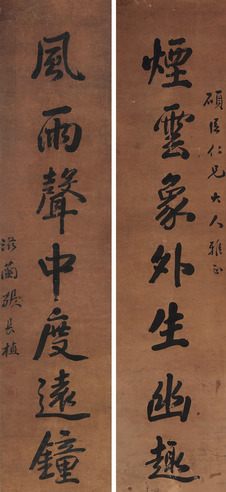 碩臣仁兄大人雅正
煙雲象外生幽趣
風雨聲中度遠鐘
張長植